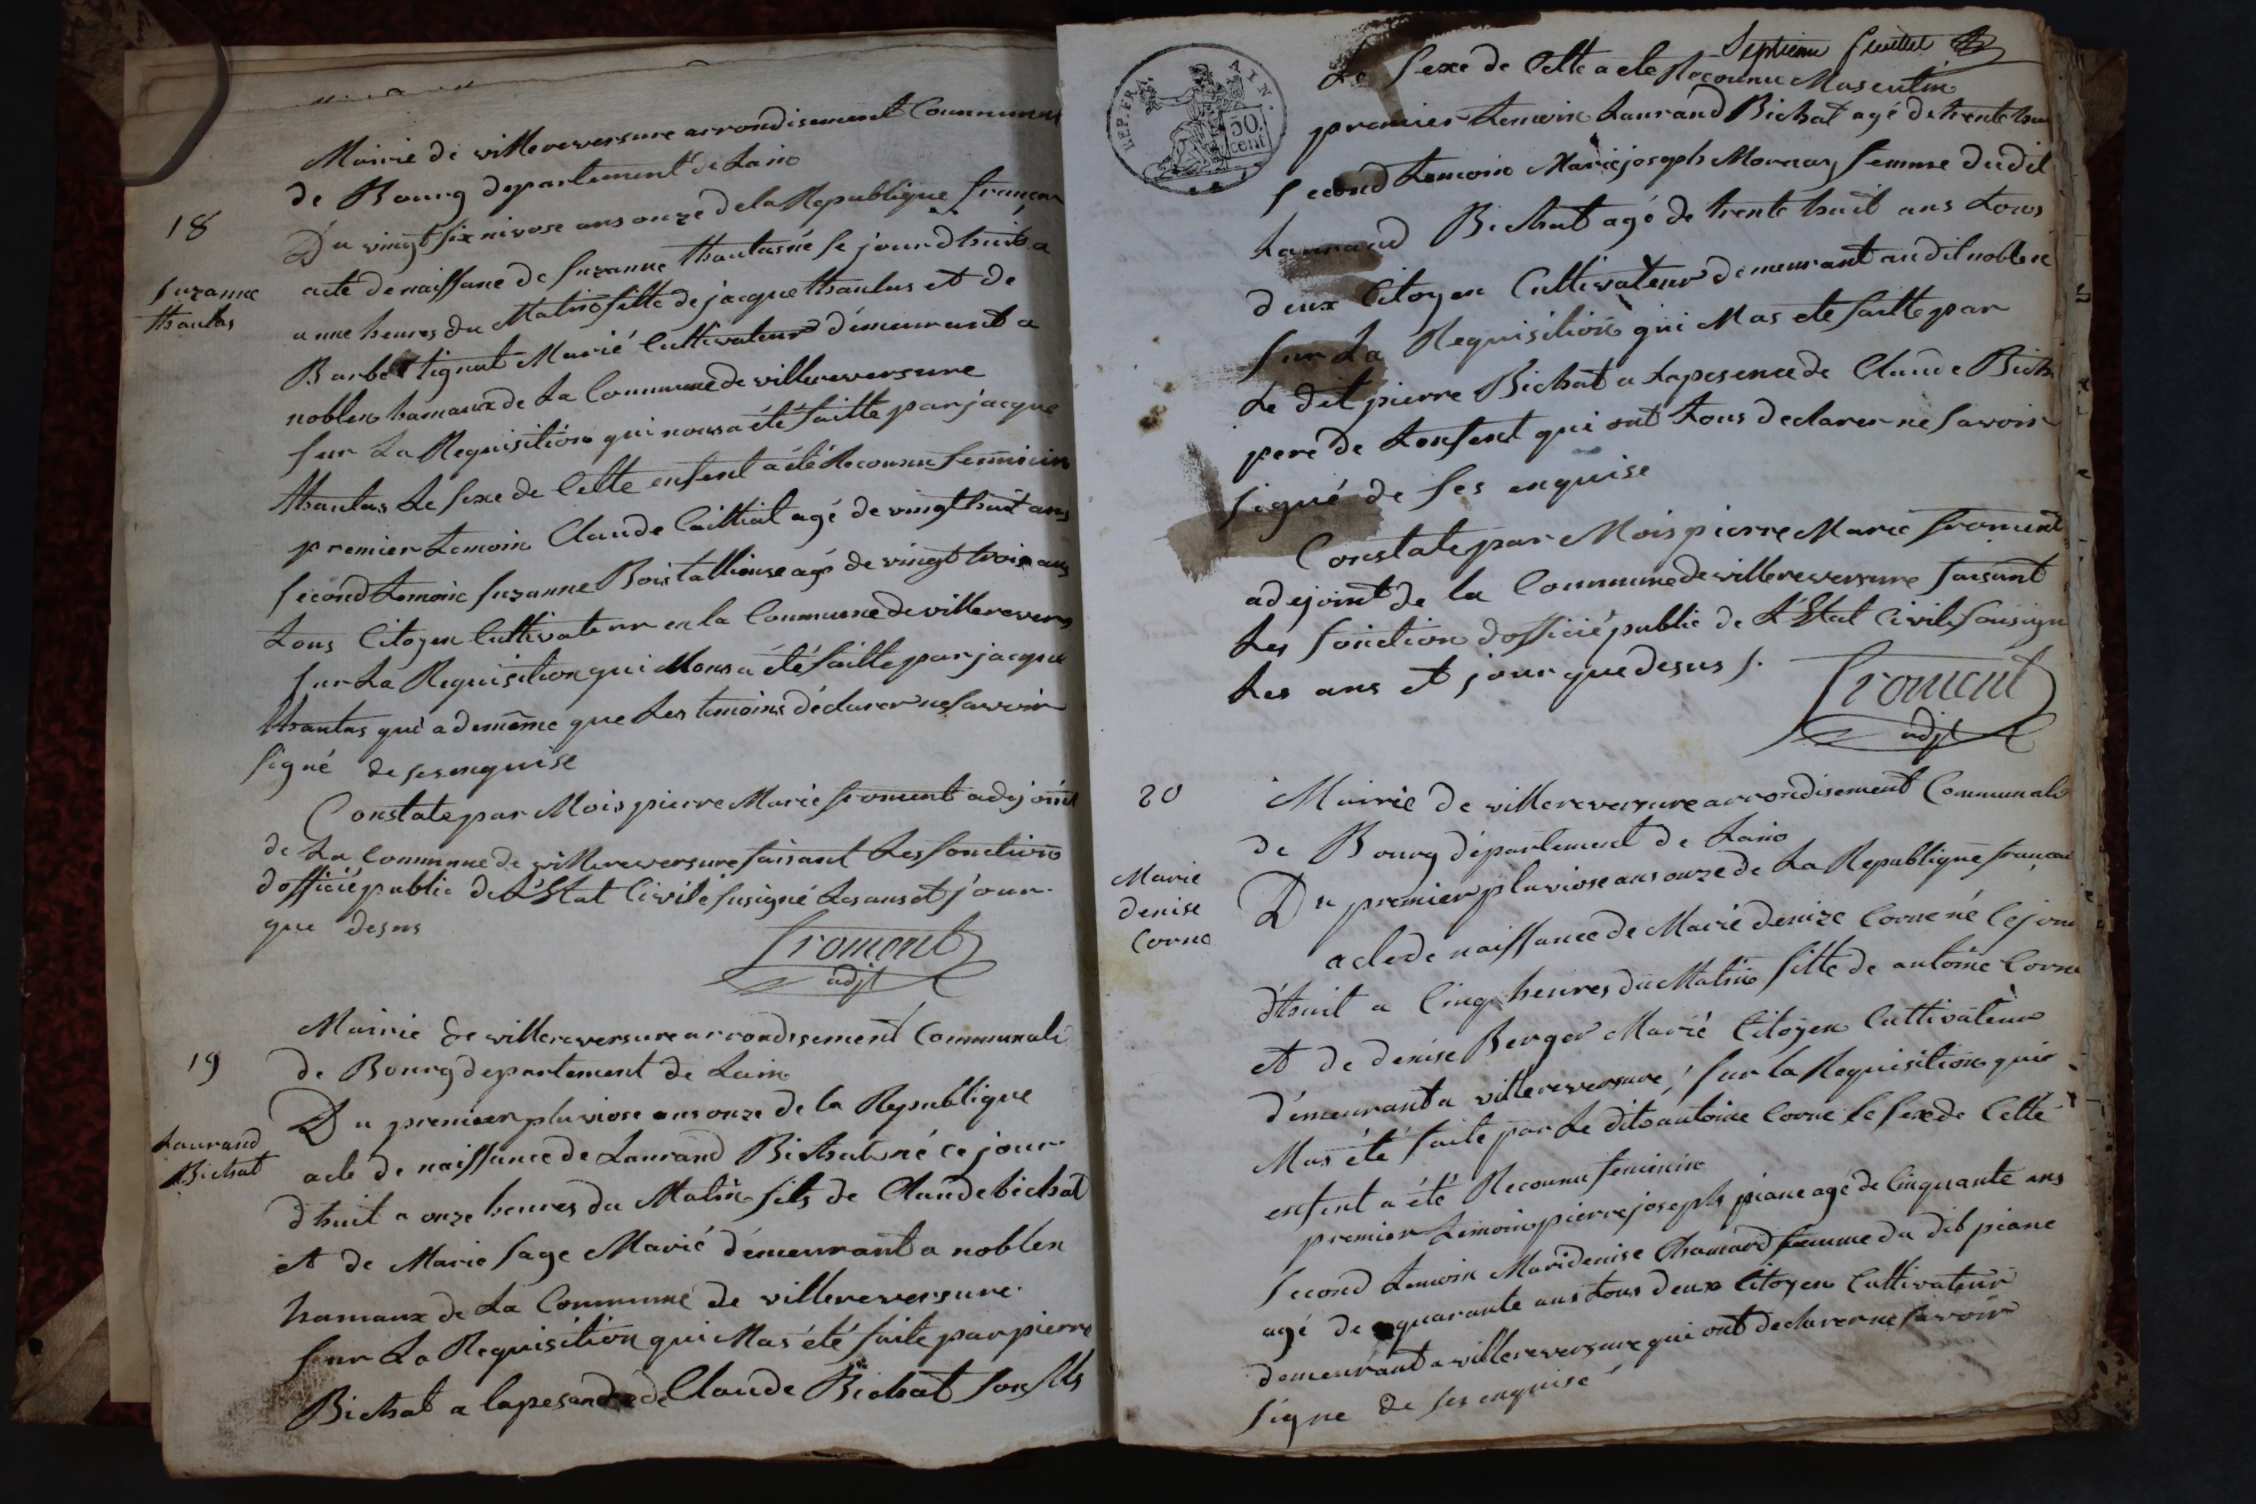 Mairie de villereversure arrondisement Communal
de Bourg departement de Lain
18
Du vingt six nivose ans onze de la Republique françai
Suzanne
thantas
acte de naissane de Suzanne thantas né se jourdhuit a
unne heures du Matin fille de jacque thantas et de
Barbe tignat Marié Cultivateur démeurant a
noblen hamaux de La Commune de villereversure
sur La Requisition qui nous a été faitte par jacque
thantas Le sexe de Cette enfent a été Reconnu feminin
premier temoin Claude Cailliat agé de vingt huit ans
second temoin suzanne Bois tallieuse agé de vingt trois ans
tous Citoyen Cultivateur en la Commune de villerevers
sur La Requisition qui Nous a été faitte par jacque
thantas qui a de même que Les temoins déclarer ne savoir
signé de ses enquise
Constate par Mois pierre Marie froment adejoint
de La Commune de villereversure faisant Les fonction
dofficié public de L'Etat Civile susigné Les ans et jour
que desus
froment
adjt
Mairie de villereversure arrondisement Communale
19
de Bourg departement de Lain
Du premier pluviose ans onze de la Republique
Laurand
Bichat
acte de naissance de Laurand Bichat né ce jour
dhuit a onze heures du Matin fils de Claude bichat
et de Marie sage Marié démeurant a noblen
hamaux de La Commune de villereversure
sur La Requisition qui Mas été faite par pierre
Bichat a la pesance de Claude Bichat son fils
Septieme feuillet
REP. FRA.
50
cent
Le sexe de Cette a ete Reconnu Masculin
premier temoin Laurand Bichat agé de trente
second temoin Marie joseph Mornay femme dudit
Laurand Bichat agé de trente huit ans tous
deux Citoyen Cultivateur demeurant audit noblen
sur La Requisition qui Mas ete faitte par
Le dit pierre Bichat a La pesence de Claude Bich
pere de Lenfent qui ont tous declarer ne savoir
signé de ses enquise
Constate par Mois pierre Marie froment
adejoint de la Commune de villereversure faisant
Les fonction dofficié public de L'Etat Civile sousign
Les ans et jour que desus
froment
adjt
20
Mairie de villereversure arrondisement Communale
de Bourg département de Lain
Du premier pluviose ans onze de La Republique françai
Marie
denise
Corne
acte de naissance de Marie denize Corne né Cejour
d'huit a Cinq heures du Matin fille de antoine Corne
et de denise Berger Marié Citoyen Cultivateur
démeurant a villereversure, sur la Requisition qui
Mas été faite par Le dit antoine Corne le sexe de Cette
enfent a été Reconnu feminin
premier temoin pierre joseph piane agé de Cinquante ans
second temoin Maridenise Chamard femme du dit piane
agé de quarante ans tous deux Citoyen Cultivateur
demeurant a villereversure qui ont declarer ne savoir
signe de ses enquisé